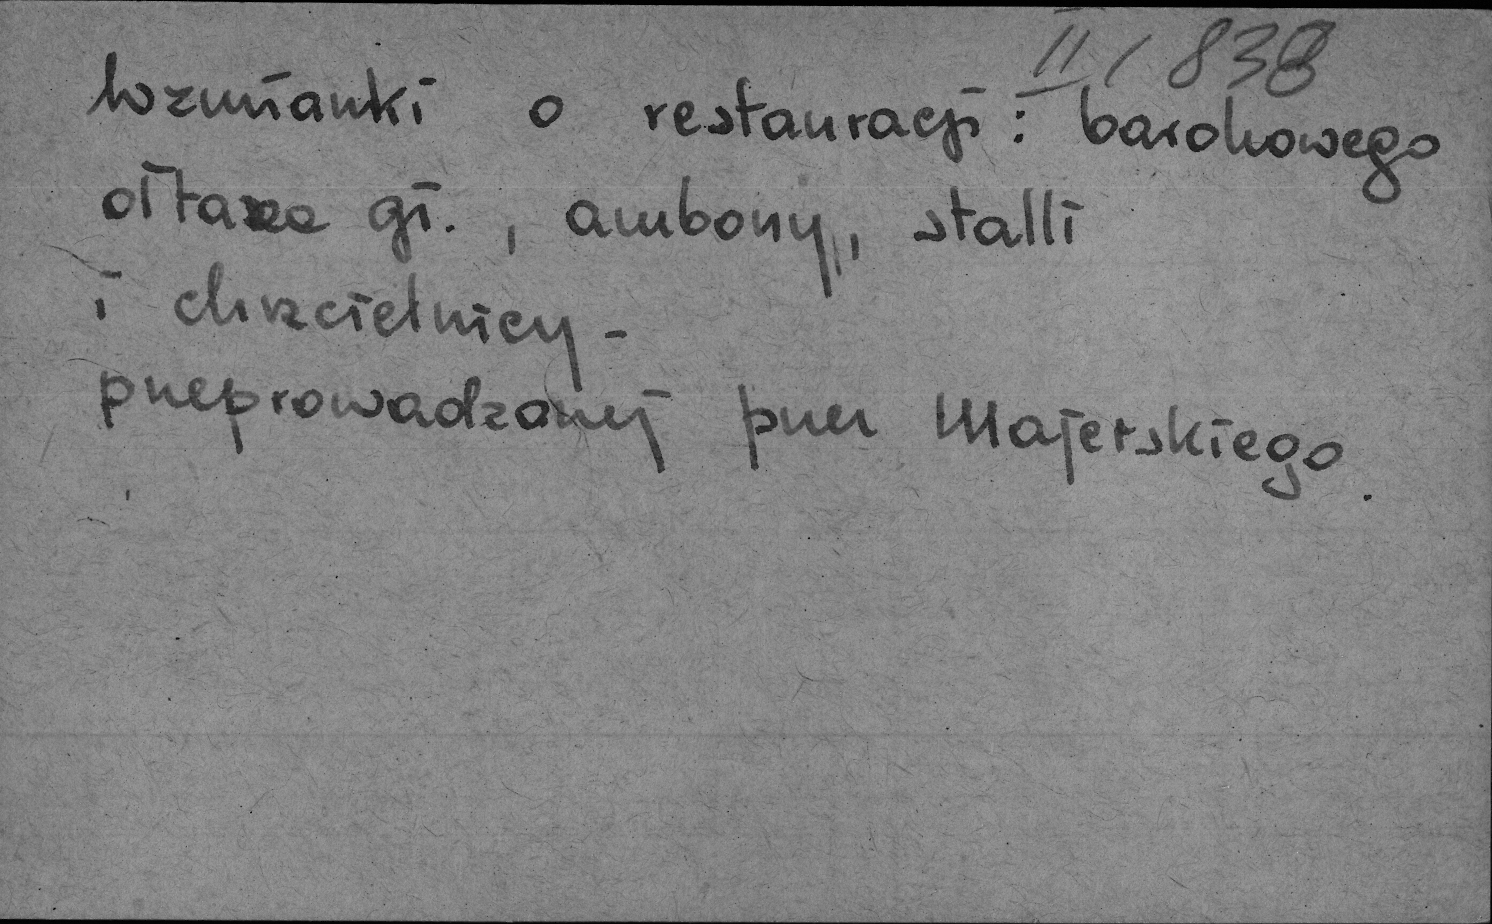 II/838
Wzmianki o restauracji: barokowego
ołtarza gł., ambony, stalli
i chrzcielnicy -
przeprowadzonej przez Majerskiego.